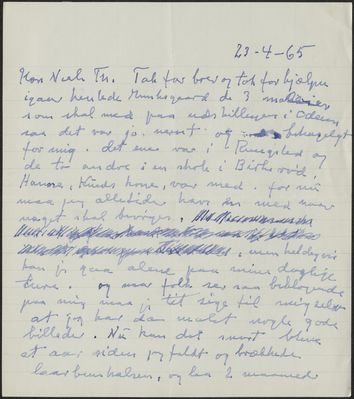 23-4-65
Kære Niels Th. Tak for brev og tak for hjælpen
igaar hentede Munksgaard de 3 malerier
som skal med paa udstillingen i Odense
saa det var jo nemt og behageligt
for mig. det ene var i Rungsted og
de to andre i en skole i Birkerød.
Hanne, Knuds kone, var med. for nu
maa jeg altid have en med naar
noget skal bevæges.
men heldigvis
kan jeg gaa alene paa mine daglige
ture. og naar folk ser saa beklagende
paa mig maa jeg tit sige til mig selv
at jeg har dog malet nogle gode
billeder. Nu kan det snart blive
et aar siden jeg faldt og brækkede
laarbenshalsen, og laa 2 maaneder